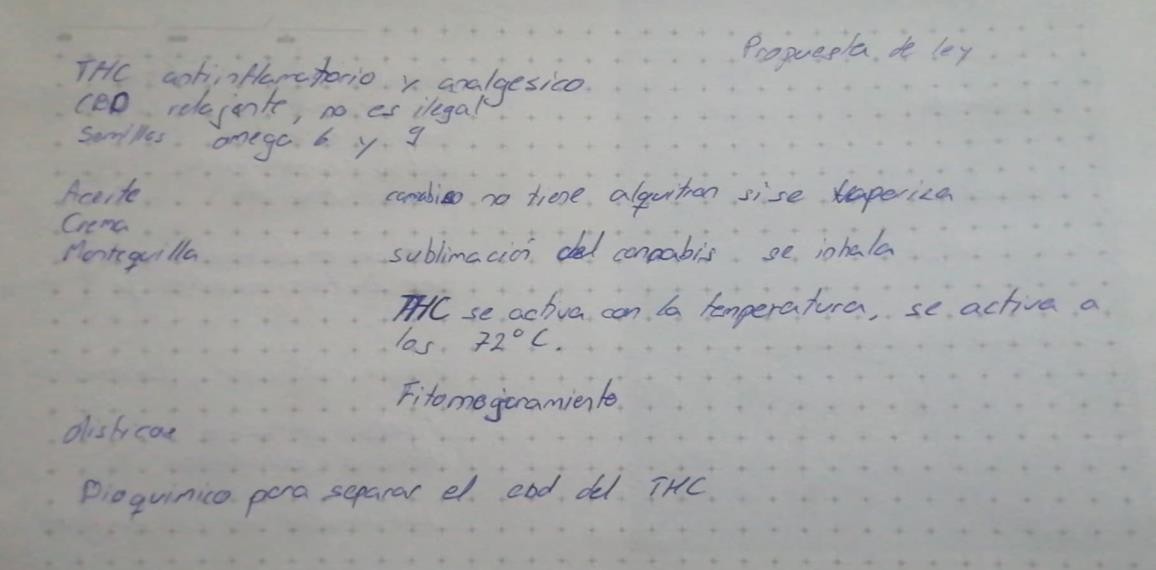 Propuesta de ley
THC antiinflamatorio y analgesico
CBD relajante, no es ilegal
Semillas omega 6 y 9
Aceite
Crema
Mantequilla
no tiene alquitran si se vaperiza
sublimación del cannabis se inhala
THC se activa con la temperatura, se activa a
las 72°C.
Fitomejoramiento
Bioquimico para separar el cbd del THC